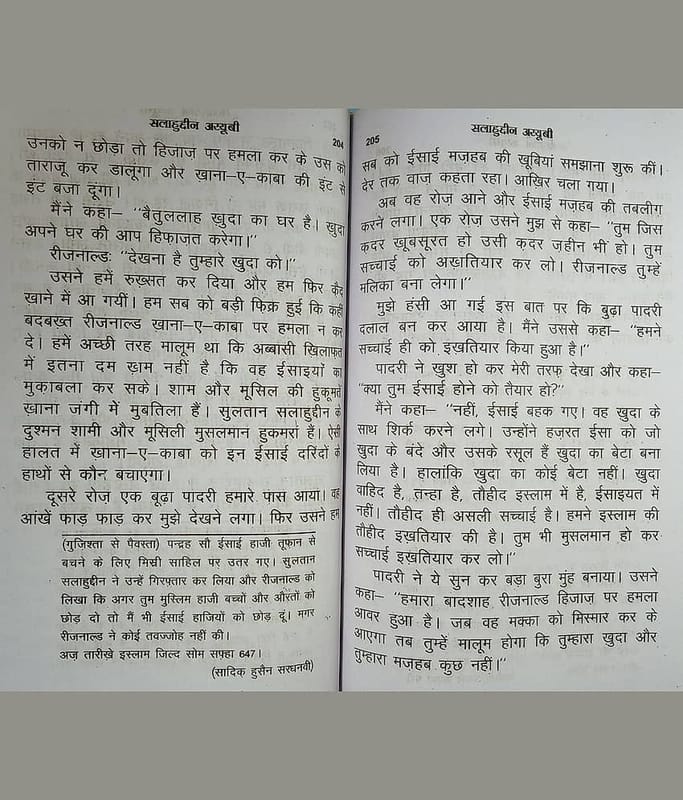 सलाहुद्दीन अय्यूबी
204
उनको न छोड़ा तो हिजाज़ पर हमला कर के उस को
ताराजू कर डालूंगा और खाना-ए-काबा की इंट से
इंट बजा दूंगा।
मैंने कहा- "बैतुललाह ख़ुदा का घर है। ख़ुदा
अपने घर की आप हिफाज़त करेगा।"
रीजनाल्डः "देखना है तुम्हारे ख़ुदा को।"
उसने हमें रुख़्सत कर दिया और हम फिर क़ैद
खाने में आ गयीं। हम सब को बड़ी फ़िक्र हुई कि कहीं
बदबख्त रीजनाल्ड खाना-ए-काबा पर हमला न कर
दे। हमें अच्छी तरह मालूम था कि अब्बासी खिलाफ़त
में इतना दम ख़म नहीं है कि वह ईसाइयों का
मुकाबला कर सके। शाम और मूसिल की हुकूमतें
ख़ाना जंगी में मुबतिला हैं। सुलतान सलाहुद्दीन के
दुश्मन शामी और मूसिली मुसलमान हुकमरां हैं। ऐसी
हालत में खाना-ए-काबा को इन ईसाई दरिंदों के
हाथों से कौन बचाएगा।
दूसरे रोज़ एक बूढ़ा पादरी हमारे पास आया। वह
आंखें फाड़ फाड़ कर मुझे देखने लगा। फिर उसने हम
(गुज़िश्ता से पैवस्ता) पन्द्रह सौ ईसाई हाजी तूफ़ान से
बचने के लिए मिस्री साहिल पर उतर गए। सुलतान
सलाहुद्दीन ने उन्हें गिरफ़्तार कर लिया और रीजनाल्ड को
लिखा कि अगर तुम मुस्लिम हाजी बच्चों और औरतों को
छोड़ दो तो मैं भी ईसाई हाजियों को छोड़ दूं। मगर
रीजनाल्ड ने कोई तवज्जोह नहीं की।
अज़ तारीखे़ इस्लाम जिल्द सोम सफ़्हा 647।
(सादिक़ हुसैन सरधनवी)
205
सलाहुद्दीन अय्यूबी
सब को ईसाई मज़हब की ख़ूबियां समझाना शुरू कीं।
देर तक वाज़ कहता रहा। आख़िर चला गया।
अब वह रोज़ आने और ईसाई मज़हब की तबलीग़
करने लगा। एक रोज़ उसने मुझ से कहा- "तुम जिस
क़दर ख़ूबसूरत हो उसी क़दर ज़हीन भी हो। तुम
सच्चाई को अख़तियार कर लो। रीजनाल्ड तुम्हें
मलिका बना लेगा।"
मुझे हंसी आ गई इस बात पर कि बुढ़ा पादरी
दलाल बन कर आया है। मैंने उससे कहा- "हमने
सच्चाई ही को इख़तियार किया हुआ है।"
पादरी ने खुश हो कर मेरी तरफ़ देखा और कहा-
"क्या तुम ईसाई होने को तैयार हो?"
मैंने कहा- "नहीं, ईसाई बहक गए। वह खुदा के
साथ शिर्क करने लगे। उन्होंने हज़रत ईसा को जो
खुदा के बंदे और उसके रसूल हैं खुदा का बेटा बना
लिया है। हालांकि खुदा का कोई बेटा नहीं। खुदा
वाहिद है, तन्हा है, तौहीद इस्लाम में है, ईसाइयत में
नहीं। तौहीद ही असली सच्चाई है। हमने इस्लाम की
तौहीद इख़तियार की है। तुम भी मुसलमान हो कर
सच्चाई इख़तियार कर लो।"
पादरी ने ये सुन कर बड़ा बुरा मुंह बनाया। उसने
कहा- "हमारा बादशाह रीजनाल्ड हिजाज़ पर हमला
आवर हुआ है। जब वह मक्का को मिस्मार कर के
आएगा तब तुम्हें मालूम होगा कि तुम्हारा खुदा और
तुम्हारा मज़हब कुछ नहीं।"